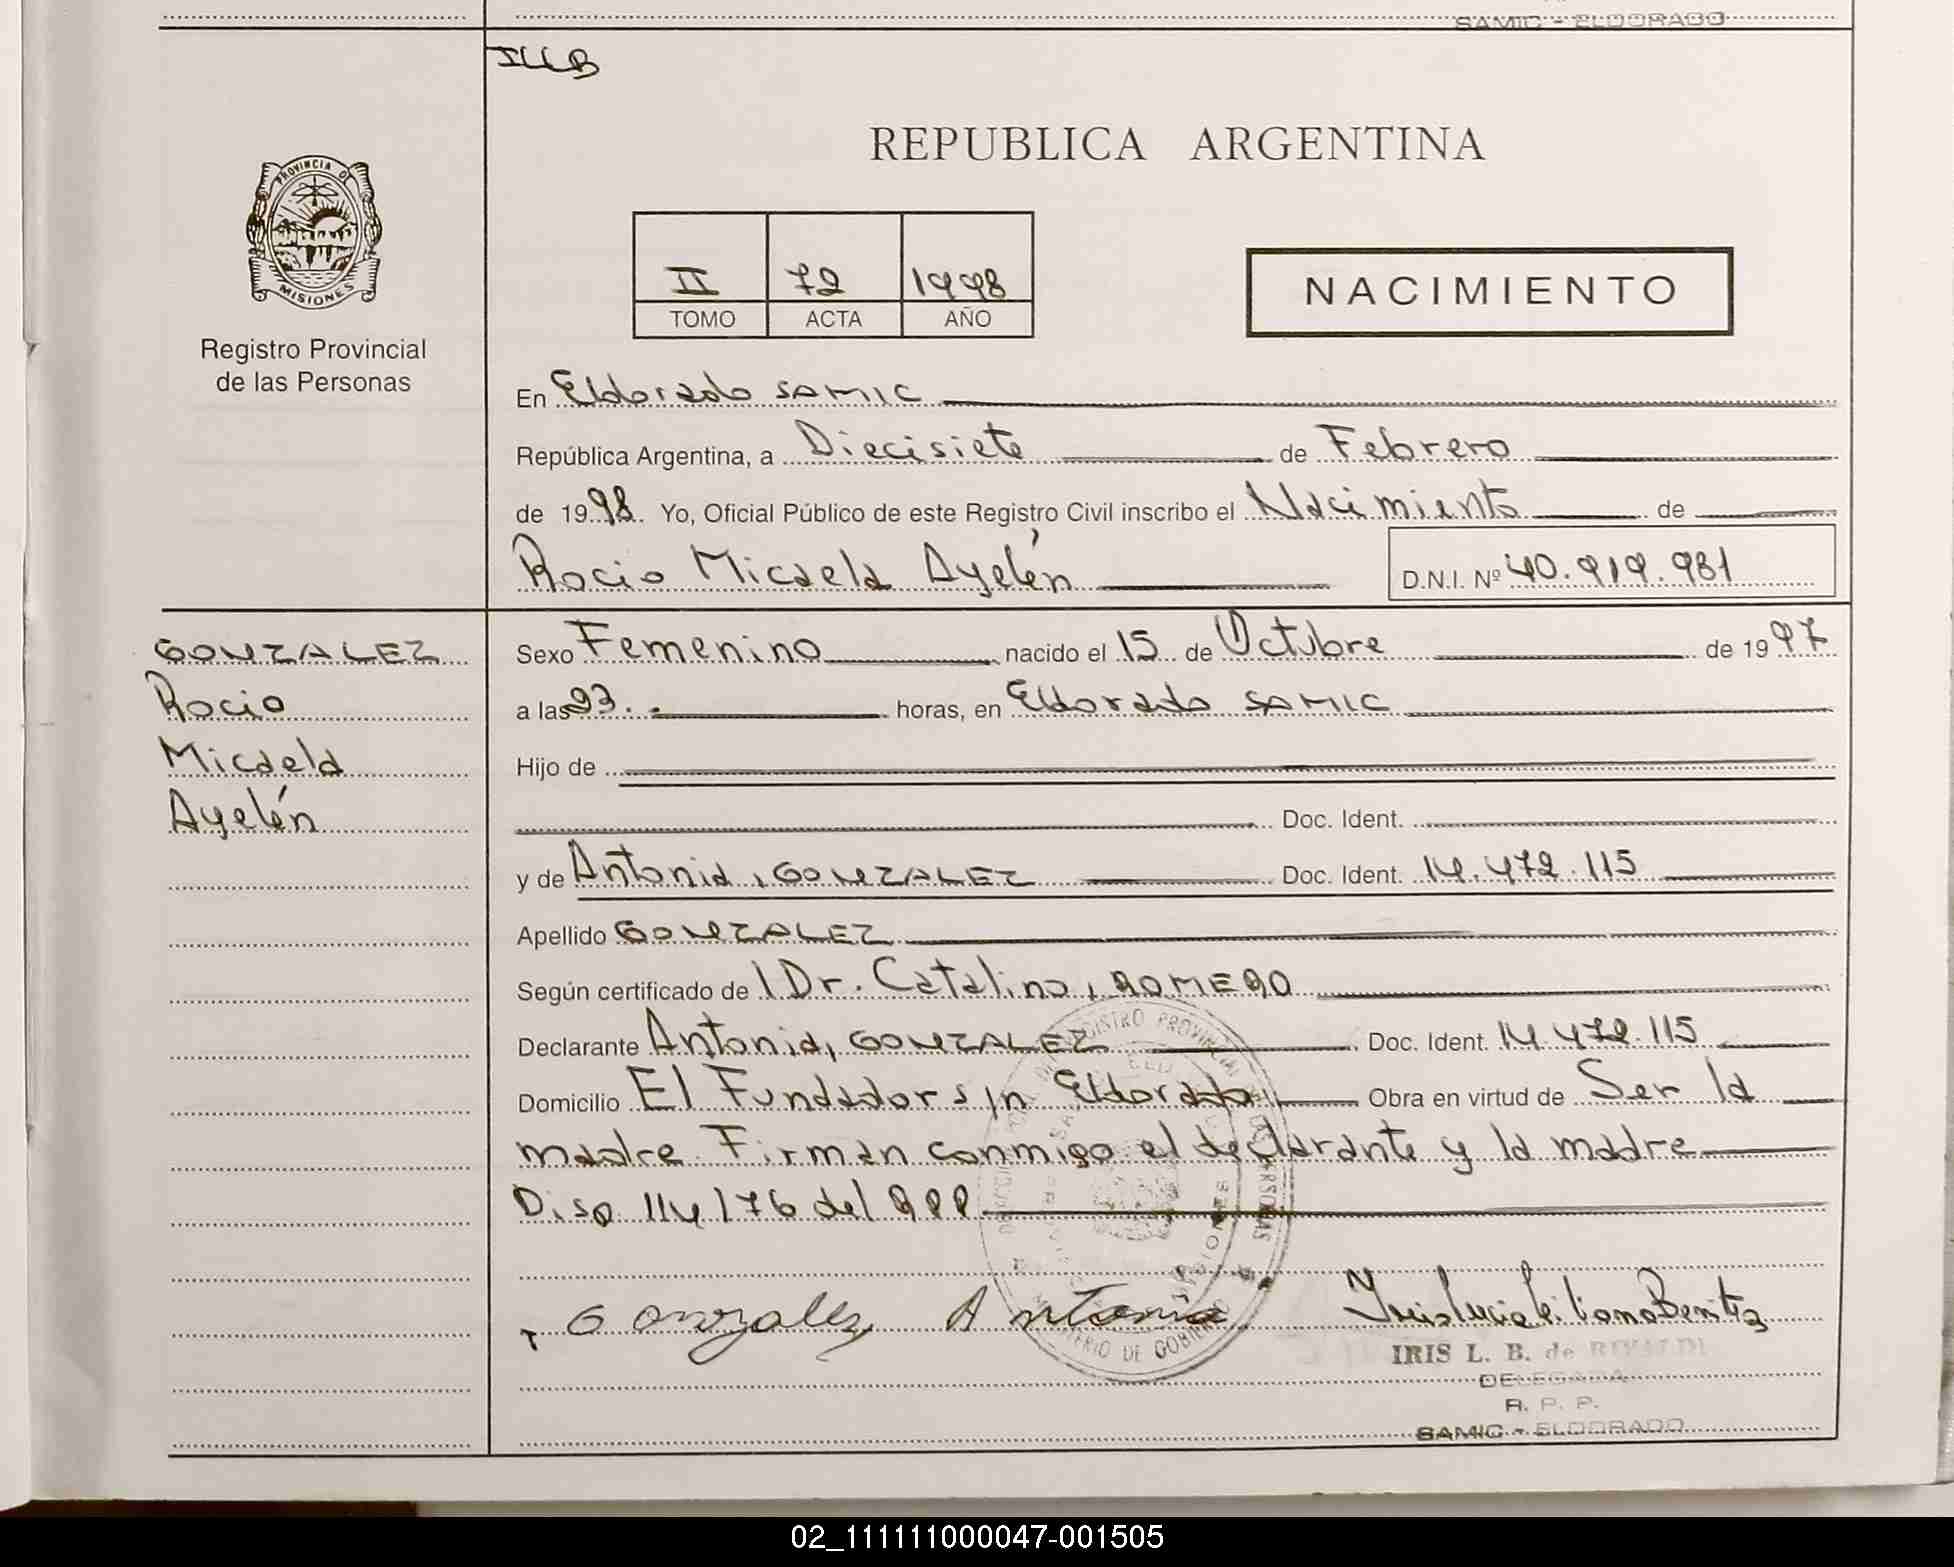 SAMIC - ELDORADO
ILLB
REPUBLICA ARGENTINA
PROVINCIA DE
MISIONES
Registro Provincial
de las Personas
II 72 1998
TOMO ACTA AÑO
NACIMIENTO
En Eldorado SAMIC
República Argentina, a Diecisiete de Febrero
de 1998. Yo, Oficial Público de este Registro Civil inscribo el Nacimiento de
Rocio Micaela Ayelén D.N.I. Nº 40.919.981
GONZALEZ
Rocio
Micaela
Ayelén
Sexo Femenino nacido el 15 de Octubre de 1997
a las 23. horas, en Eldorado SAMIC
Hijo de
Doc. Ident.
y de Antonia, GONZALEZ Doc. Ident. 14.472.115
Apellido GONZALEZ
Según certificado de l Dr. Catalino, ROMERO
Declarante Antonia, GONZALEZ Doc. Ident. 14.472.115
Domicilio El Fundador s/n Eldorado Obra en virtud de Ser la
madre. Firman conmigo el declarante y la madre
Disp 114/76 del RPP
Gonzalez Antonia
IRIS L. B. de RIVALDI
DELEGADA
R. P. P.
SAMIC - ELDORADO
02_111111000047-001505